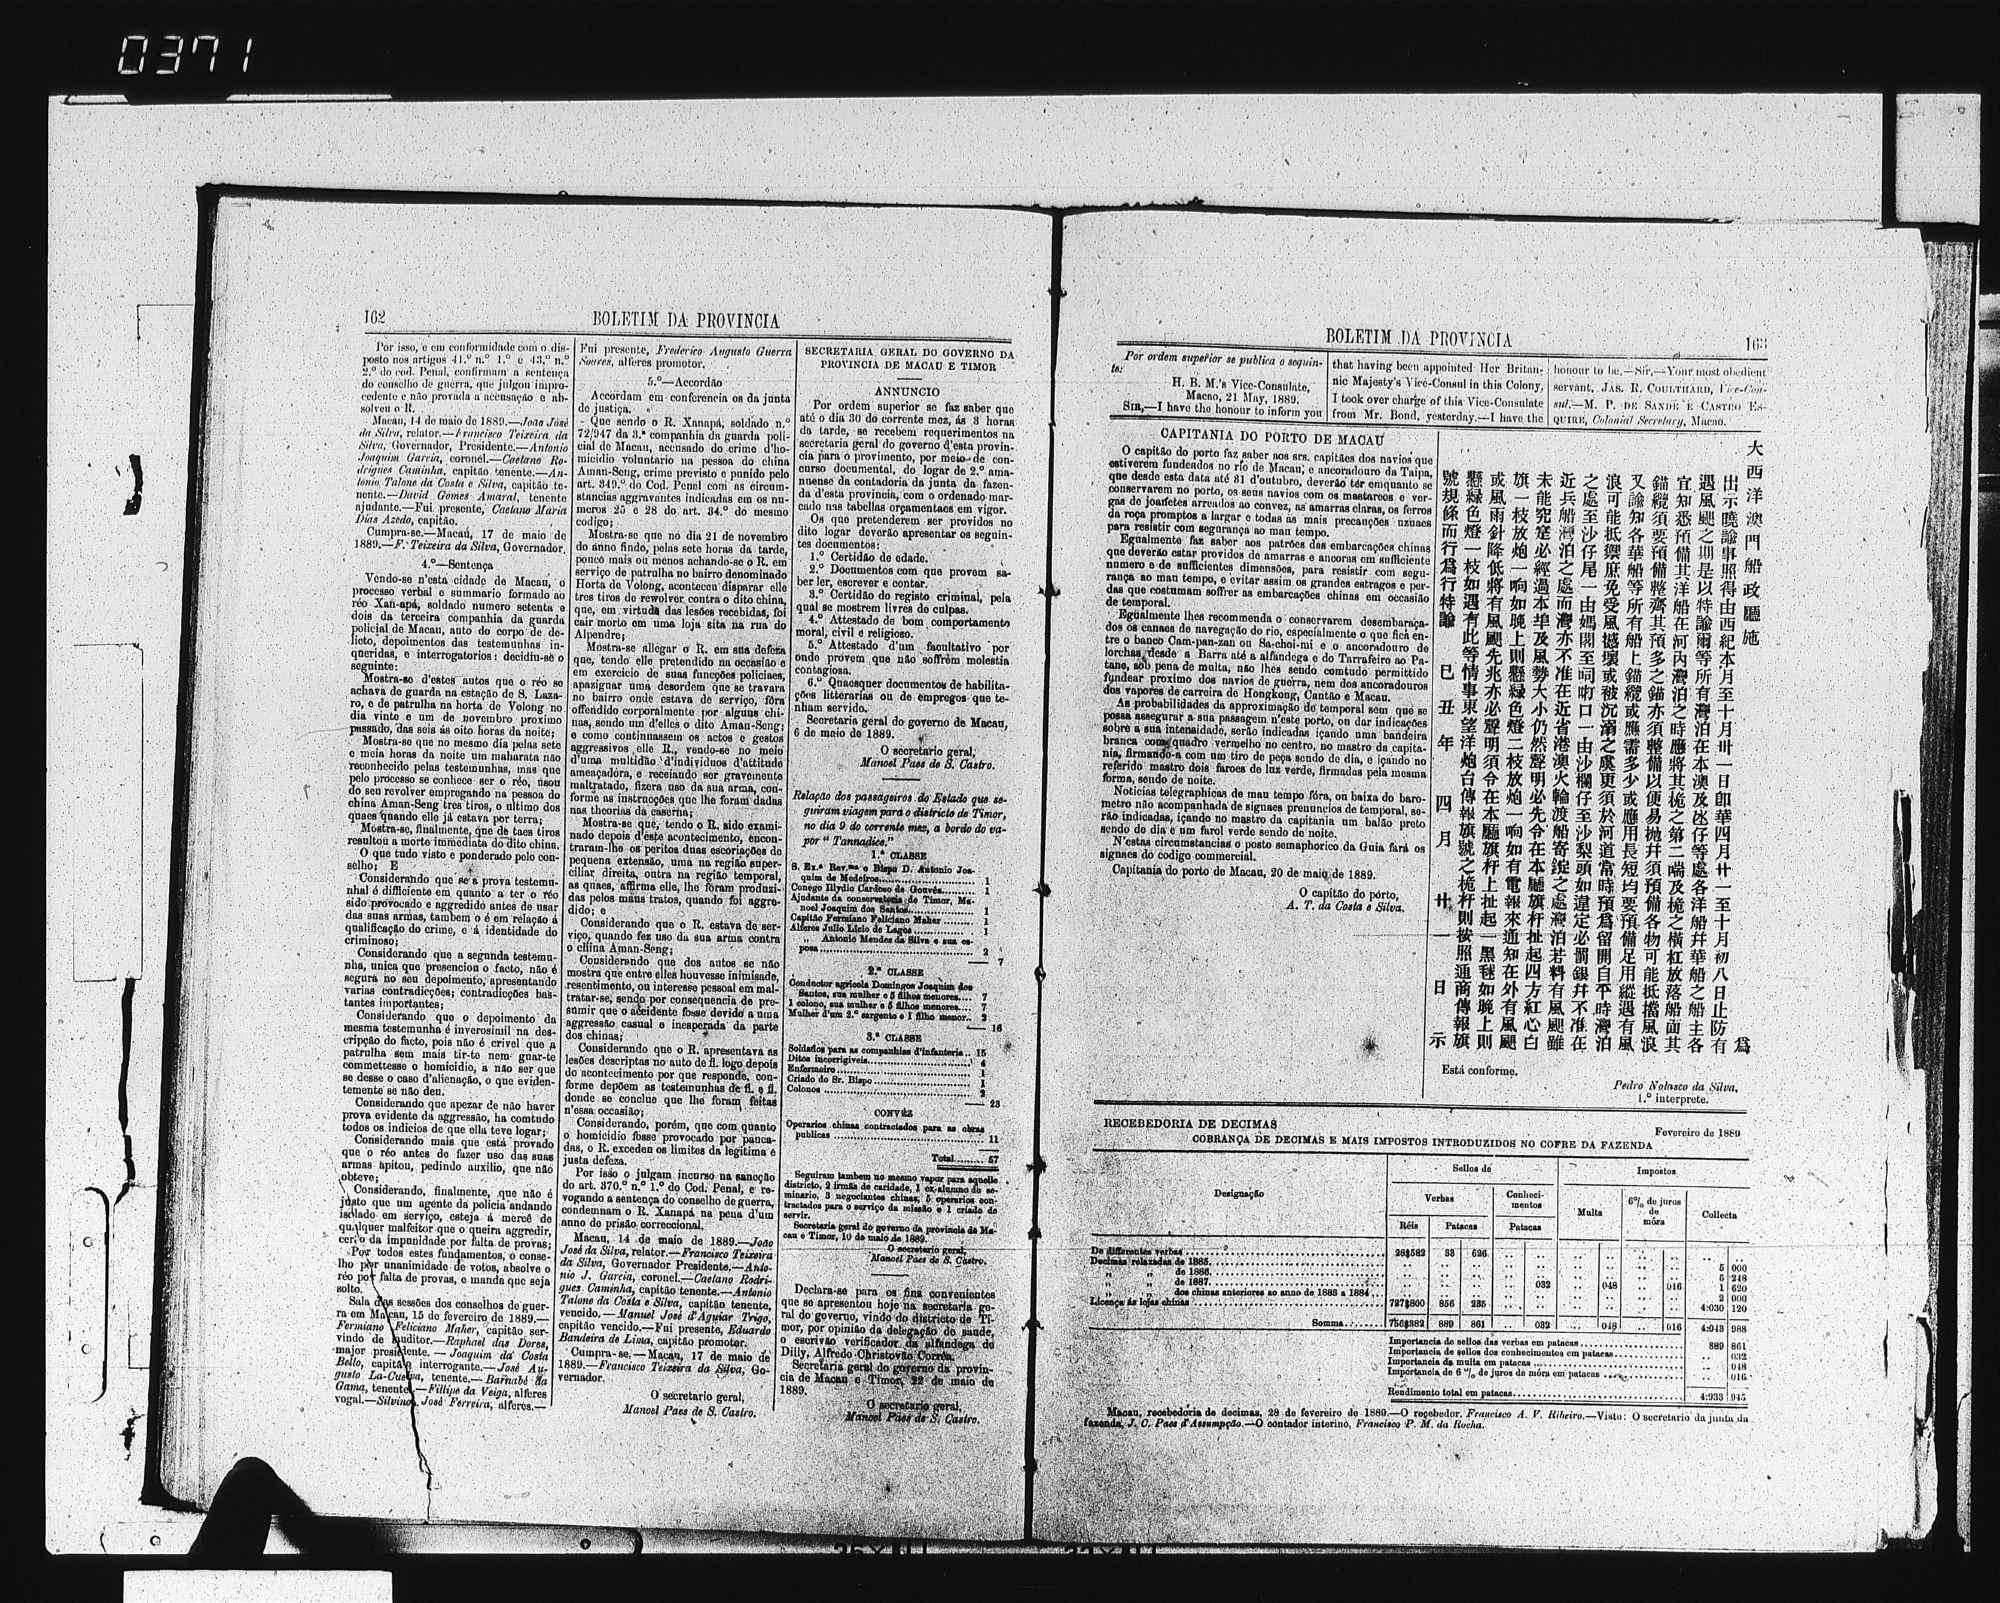 0371
162
BOLETIM DA PROVINCIA
Por isso, e em conformidade com o dis-
posto nos artigos 41.º n.º 1.º e 43.º n.º
2.º do cod. Penal, confirmam a sentença
do conselho de guerra, que julgou impro-
cedente e não provada a accusação e ab-
solveu o R.
Macau, 14 de maio de 1889.—João José
da Silva, relator.—Francisco Teixeira da
Silva, Governador, Presidente.—Antonio
Joaquim Garcia, coronel.—Caetano Ro-
drigues Caminha, capitão tenente.—An-
tonio Talone da Costa e Silva, capitão te-
nente.—David Gomes Amaral, tenente
ajudante.—Fui presente, Caetano Maria
Dias Azedo, capitão.
Cumpra-se.—Macau, 17 de maio de
1889.—F. Teixeira da Silva, Governador.
4.º—Sentença
Vendo-se n'esta cidade de Macau, o
processo verbal e summario formado ao
réo Xan-apá, soldado numero setenta e
dois da terceira companhia da guarda
policial de Macau, auto do corpo de de-
licto, depoimentos das testemunhas in-
queridas, e interrogatorios: decidiu-se o
seguinte:
Mostra-se d'estes autos que o réo se
achava de guarda na estação de S. Laza-
ro, e de patrulha na horta de Volong no
dia vinte e um de novembro proximo
passado, das seis ás oito horas da noite;
Mostra-se que no mesmo dia pelas sete
e meia horas da noite um maharata não
reconhecido pelas testemunhas, mas que
pelo processo se conhece ser o réo, usou
do seu revolver empregando na pessoa do
china Aman-Seng tres tiros, o ultimo dos
quaes quando elle já estava por terra;
Mostra-se, finalmente, que de taes tiros
resultou a morte immediata do dito china.
O que tudo visto e ponderado pelo con-
selho; E
Considerando que se a prova testemu-
nhal é difficiente em quanto a ter o réo
sido provocado e aggredido antes de usar
das suas armas, tambem o é em relação á
qualificação do crime, e á identidade do
criminoso;
Considerando que a segunda testemu-
nha, unica que presenciou o facto, não é
segura no seu depoimento, apresentando
varias contradicções; contradicções bas-
tantes importantes;
Considerando que o depoimento da
mesma testemunha é inverosimil na des-
cripção do facto, pois não é crivel que a
patrulha sem mais tir-te nem guar-te
commettesse o homicidio, a não ser que
se desse o caso d'alienação, o que eviden-
temente se não deu.
Considerando que apezar de não haver
prova evidente da aggressão, ha comtudo
todos os indicios de que ella teve logar;
Considerando mais que está provado
que o réo antes do fazer uso das suas
armas apitou, pedindo auxilio, que não
obteve;
Considerando, finalmente, que não é
justo que um agente da policia andando
isolado em serviço, esteja á mercê de
qualquer malfeitor que o queira aggredir,
certo da impunidade por falta de provas;
Por todos estes fundamentos, o conse-
lho por unanimidade de votos, absolve o
réo por falta de provas, e manda que seja
solto.
Sala das sessões dos conselhos de guer-
ra em Macau, 15 de fevereiro de 1889.—
Fermiano Feliciano Maher, capitão ser-
vindo de auditor.—Raphael das Dores,
major presidente.—Joaquim da Costa
Bello, capitão interrogante.—José Au-
gusto La-Cueva, tenente.—Barnabé da
Gama, tenente.—Fillipe da Veiga, alferes
vogal.—Silvino José Ferreira, alferes.—
Fui presente, Frederico Augusto Guerra
Soares, alferes promotor.
5.º—Accordão
Accordam em conferencia os da junta
de justiça.
Que sendo o R. Xanapá, soldado n.º
72/947 da 3.ª companhia da guarda poli-
cial de Macau, accusado do crime d'ho-
micidio voluntario na pessoa do china
Aman-Seng, crime previsto e punido pelo
art. 349.º do Cod. Penal com as circum-
stancias aggravantes indicadas em os nu-
meros 25 e 28 do art. 34.º do mesmo
codigo;
Mostra-se que no dia 21 de novembro
do anno findo, pelas sete horas da tarde,
pouco mais ou menos achando-se o R. em
serviço de patrulha no bairro denominado
Horta de Volong, aconteceu disparar elle
tres tiros de rewolver contra o dito china,
que, em virtude das lesões recebidas, foi
cair morto em uma loja sita na rua do
Alpendre;
Mostra-se allegar o R. em sua defeza
que, tendo elle pretendido na occasião e
em exercicio de suas funcções policiaes,
apaziguar uma desordem que se travara
no bairro onde estava de serviço, fôra
offendido corporalmente por alguns chi-
nas, sendo um d'elles o dito Aman-Seng;
e como continuassem os actos e gestos
aggressivos elle R., vendo-se no meio
d'uma multidão d'individuos d'attitude
ameaçadora, e receiando ser gravemente
maltratado, fizera uso da sua arma, con-
forme as instrucções que lhe foram dadas
nas theorias da caserna;
Mostra-se que, tendo o R. sido exami-
nado depois d'este acontecimento, encon-
traram-lhe os peritos duas escoriações de
pequena extensão, uma na região super-
ciliar direita, outra na região temporal,
as quaes, affirma elle, lhe foram produzi-
das pelos maus tratos, quando foi aggre-
dido; e
Considerando que o R. estava de ser-
viço, quando fez uso da sua arma contra
o china Aman-Seng;
Considerando que dos autos se não
mostra que entre elles houvesse inimisade,
resentimento, ou interesse pessoal em mal-
tratar-se, sendo por consequencia de pre-
sumir que o accidente fosse devido a uma
aggressão casual e inesperada da parte
dos chinas;
Considerando que o R. apresentava as
lesões descriptas no auto de fl. logo depois
do acontecimento por que responde, con-
forme depõem as testemunhas de fl. e fl.
donde se conclue que lhe foram feitas
n'essa occasião;
Considerando, porém, que com quanto
o homicidio fosse provocado por panca-
das, o R. excedeu os limites da legitima e
justa defeza.
Por isso o julgam incurso na sancção
do art. 370.º n.º 1.º do Cod. Penal, e re-
vogando a sentença do conselho de guerra,
condemnam o R. Xanapá na pena d'um
anno de prisão correccional.
Macau, 14 de maio de 1889.—João
José da Silva, relator.—Francisco Teixeira
da Silva, Governador Presidente.—Anto-
nio J. Garcia, coronel.—Caetano Rodri-
gues Caminha, capitão tenente.—Antonio
Talone da Costa e Silva, capitão tenente,
vencido.—Manuel José d'Aguiar Trigo,
capitão vencido.—Fui presente, Eduardo
Bandeira de Lima, capitão promotor.
Cumpra-se.—Macau, 17 de maio de
1889.—Francisco Teixeira da Silva, Go-
vernador.
O secretario geral,
Manoel Paes de S. Castro.
SECRETARIA GERAL DO GOVERNO DA
PROVINCIA DE MACAU E TIMOR
ANNUNCIO
Por ordem superior se faz saber que
até o dia 30 do corrente mez, ás 3 horas
da tarde, se recebem requerimentos na
secretaria geral do governo d'esta provin-
cia para o provimento, por meio de con-
curso documental, do logar de 2.º ama-
nuense da contadoria da junta da fazen-
da d'esta provincia, com o ordenado mar-
cado nas tabellas orçamentaes em vigor.
Os que pretenderem ser providos no
dito logar deverão apresentar os seguin-
tes documentos:
1.º Certidão de edade.
2.º Documentos com que provem sa-
ber ler, escrever e contar.
3.º Certidão do registo criminal, pela
qual se mostrem livres de culpas.
4.º Attestado de bom comportamento
moral, civil e religioso.
5.º Attestado d'um facultativo por
onde provem que não soffrem molestia
contagiosa.
6.º Quaesquer documentos de habilita-
ções litterarias ou de empregos que te-
nham servido.
Secretaria geral do governo de Macau,
6 de maio de 1889.
O secretario geral,
Manoel Paes de S. Castro.
Relação dos passageiros do Estado que se-
guiram viagem para o districto de Timor,
no dia 9 do corrente mez, a bordo do va-
por "Tannadice."
1.ª CLASSE
S. Ex.ª Rev.ma o Bispo D. Antonio Joa-
quim de Medeiros 1
Conego Illydio Cardoso de Gouvêa 1
Ajudante da conservatoria de Timor, Ma-
noel Joaquim dos Santos 1
Capitão Fermiano Feliciano Maher 1
Alferes Julio Licio de Lagos 1
„ Antonio Mendes da Silva e sua es-
posa 2
7
2.ª CLASSE
Conductor agricola Domingos Joaquim dos
Santos, sua mulher e 5 filhos menores 7
1 colono, sua mulher e 5 filhos menores 7
Mulher d'um 2.º sargento e 1 filho menor 2
16
3.ª CLASSE
Soldados para as companhias d'infanteria 15
Ditos incorrigiveis 4
Enfermeiro 1
Criado do Sr. Bispo 1
Colonos 2
23
CONVÉZ
Operarios chinas contractados para as obras
publicas 11
Total 57
Seguiram tambem no mesmo vapor para aquelle
districto, 2 irmãs de caridade, 1 ex-alumno do se-
minario, 3 negociantes chinas, 5 operarios con-
tractados para o serviço da missão e 1 criado de
servir.
Secretaria geral do governo da provincia de Ma-
cau e Timor, 10 de maio de 1889.
O secretario geral,
Manoel Paes de S. Castro.
Declara-se para os fins convenientes
que se apresentou hoje na secretaria ge-
ral do governo, vindo do districto de Ti-
mor, por opinião da delegação de saude,
o escrivão verificador da alfandega de
Dilly, Alfredo Christovão Corrêa.
Secretaria geral do governo da provin-
cia de Macau e Timor, 22 de maio de
1889.
O secretario geral,
Manoel Paes de S. Castro.
BOLETIM DA PROVINCIA
163
Por ordem superior se publica o seguin-
te:
H. B. M.'s Vice-Consulate,
Macao, 21 May, 1889.
SIR,—I have the honour to inform you
that having been appointed Her Britan-
nic Majesty's Vice-Consul in this Colony,
I took over charge of this Vice-Consulate
from Mr. Bond, yesterday.—I have the
honour to be,—Sir,—Your most obedient
servant, JAS. R. COULTHARD, Vice-Con-
sul.—M. P. DE SANDE E CASTRO ES-
QUIRE, Colonial Secretary, Macao.
CAPITANIA DO PORTO DE MACAU
O capitão do porto faz saber aos srs. capitães dos navios que
estiverem fundeados no rio de Macau, e ancoradouro da Taipa,
que desde esta data até 31 d'outubro, deverão ter emquanto se
conservarem no porto, os seus navios com os mastareos e ver-
gas de joanetes arreados ao convez, as amarras claras, os ferros
da roça promptos a largar e todas as mais precauções usuaes
para resistir com segurança ao mau tempo.
Egualmente faz saber aos patrões das embarcações chinas
que deverão estar providos de amarras e ancoras em sufficiente
numero e de sufficientes dimensões, para resistir com segu-
rança ao mau tempo, e evitar assim os grandes estragos e per-
das que costumam soffrer as embarcações chinas em occasião
de temporal.
Egualmente lhes recommenda o conservarem desembaraça-
dos os canaes de navegação do rio, especialmente o que fica en-
tre o banco Cam-pan-zan ou Sa-choi-mi e o ancoradouro de
lorchas desde a Barra até a alfandega e do Tarrafeiro ao Pa-
tane, sob pena de multa, não lhes sendo comtudo permittido
fundear proximo dos navios de guerra, nem dos ancoradouros
dos vapores de carreira de Hongkong, Cantão e Macau.
As probabilidades da approximação de temporal sem que se
possa assegurar a sua passagem n'este porto, ou dar indicações
sobre a sua intensidade, serão indicadas içando uma bandeira
branca com quadro vermelho no centro, no mastro da capita-
nia, firmando-a com um tiro de peça sendo de dia, e içando no
referido mastro dois faroes de luz verde, firmadas pela mesma
forma, sendo de noite.
Noticias telegraphicas de mau tempo fóra, ou baixa do baro-
metro não acompanhada de signaes prenuncios de temporal, se-
rão indicadas, içando no mastro da capitania um balão preto
sendo de dia e um farol verde sendo de noite.
N'estas circumstancias o posto semaphorico da Guia fará os
signaes do codigo commercial.
Capitania do porto de Macau, 20 de maio de 1889.
O capitão do porto,
A. T. da Costa e Silva.
大西洋澳門船政廳施 爲
出示曉諭事照得由西紀本月至十月卅一日卽華四月廿一至十月初八日止防有
遇風颶之期是以特諭爾等所有灣泊在本澳及氹仔等處各洋船幷華船之船主各
宜知悉預備其洋船在河內灣泊之時應將其桅之第二喘及桅之橫杠放落船面其
錨纜須要預備整齊其預多之錨亦須整備以便易拋幷須預備各物可能抵擋風浪
又諭知各華船等所有船上錨纜或應需多少或應用長短均要預備足用縱遇有風
浪可能抵禦庶免受風撼壞或被沉溺之虞更須於河道當時預爲留開自平時灣泊
之處至沙仔尾一由媽閣至司打口一由沙欄仔至沙梨頭如違定必罰銀幷不准在
近兵船灣泊之處而灣亦不准在近省港澳火輪渡船寄碇之處灣泊若料有風颶雖
未能究寔必經過本埠及風勢大小仍然聲明必先令在本廳旗杆扯起四方紅心白
旗一枝放炮一响如晚上則懸綠色燈二枝放炮一响如有電報來通知在外有風颶
或風雨針降低將有風颶先兆亦必聲明須令在本廳旗杆上扯起一黑毬如晚上則
懸綠色燈一枝如遇有此等情事東望洋炮台傳報旗號之桅杆則按照通商傳報旗
號規條而行爲行特諭 己丑年四月廿一日示
Está conforme.
Pedro Nolasco da Silva,
1.º interprete.
RECEBEDORIA DE DECIMAS
Fevereiro de 1889
COBRANÇA DE DECIMAS E MAIS IMPOSTOS INTRODUZIDOS NO COFRE DA FAZENDA
Designação
Sellos de
Impostos
Verbas
Conheci-
mentos
Multa
6% de juros
de
móra
Collecta
Réis
Patacas
Patacas
De differentes verbas 28$582 33 626
Decimas relaxadas de 1885 5 000
„ „ de 1886 5 248
„ „ de 1887 032 048 016 1 620
„ „ dos chinas anteriores ao anno de 1883 a 1884 2 000
Licença ás lojas chinas 727$800 856 235 4:030 120
Somma 756$382 889 861 032 048 016 4:043 988
Importancia de sellos das verbas em patacas 889 861
Importancia de sellos dos conhecimentos em patacas 032
Importancia da multa em patacas 048
Importancia de 6 % de juros de móra em patacas 016
Rendimento total em patacas 4:933 945
Macau, recebedoria de decimas, 28 de fevereiro de 1889.—O recebedor, Francisco A. V. Ribeiro.—Visto: O secretario da junta da
fazenda, J. C. Paes d'Assumpção.—O contador interino, Francisco P. M. da Rocha.